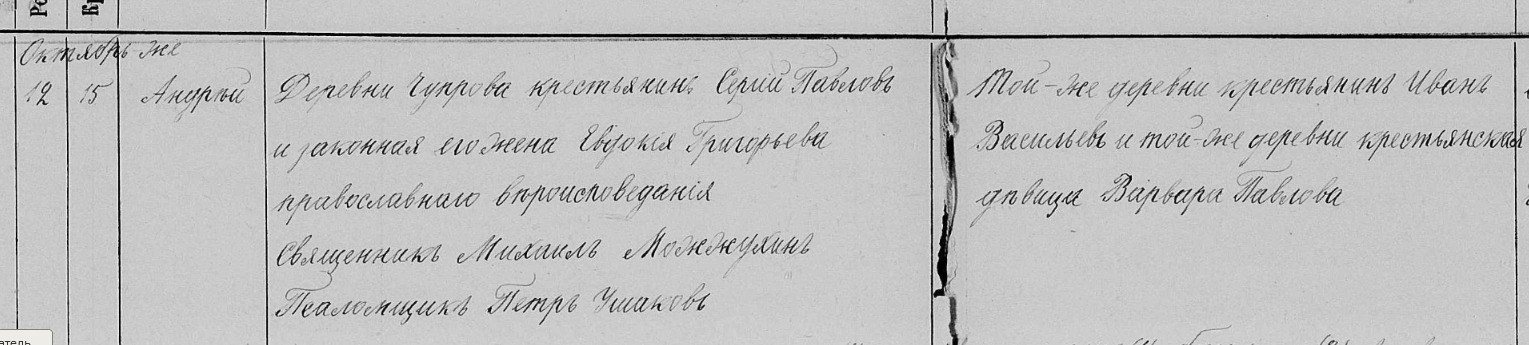 Октябрь же
12 15 Андрѣй Деревни Чупрова крестьянинъ Сергій Павловъ
и законная его жена Евдокія Григорьева
православнаго вѣроисповеданія
Священникъ Михаилъ Можжухинъ
Псаломщикъ Петръ Ушаковъ
Той-же деревни крестьянинъ Иванъ
Васильевъ и той-же деревни крестьянская
дѣвица Варвара Павлова